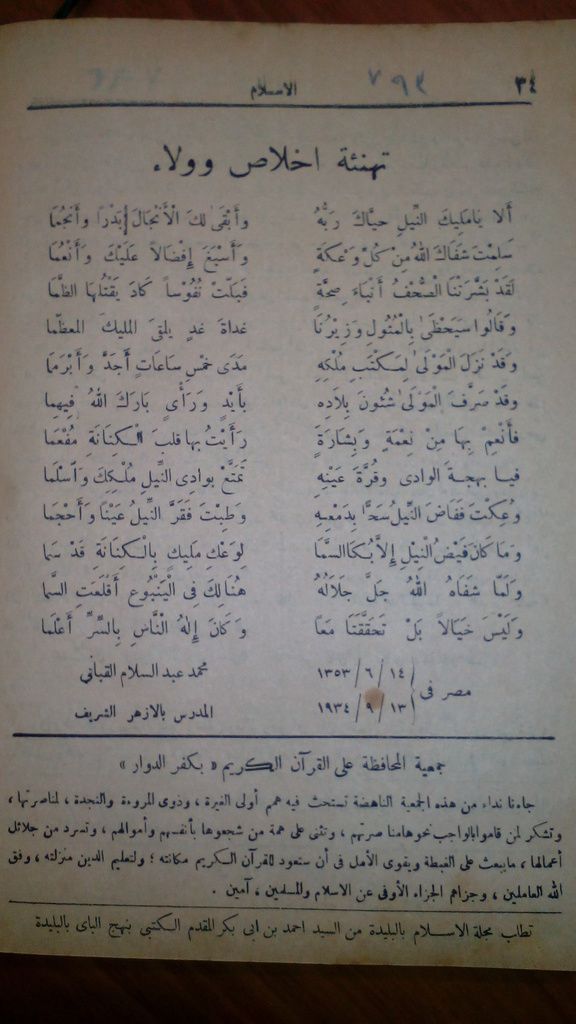 ٣٤ الاسلام ٧٩٣
تهنئة اخلاص وولاء
أَلا يَامَلِيكَ النِّيلِ حيَّاكَ رَبُّهُ وأَبْقَى لكَ الْأَنْجَالَ بَدْرًا وأَنْجُمَا
سَلِمْتَ شَفَاكَ اللهُ مِنْ كُلِّ وَعْكَةٍ وَأَسْبَغَ إِفْضَالاً عَلَيْكَ وَأَنْعُمَا
لَقَدْ بَشَّرَتْنَا الصُّحْفُ أَنْبَاءَ صِحَّةٍ فَبَلَّتْ نُفُوْساً كَادَ يَقْتُلُهَا الظَّمَا
وَقَالُوا سَيَحْظَى بِالْمُثُولِ وَزِيْرُنَا غداةَ غدٍ يلقىَ المليكَ المعظَّما
وَقَدْ نَزَلَ الْمَوْلَى لِمَكْتَبِ مُلْكِهِ مَدَى خَمْسِ سَاعَاتٍ أَجَدَّ وَأَبْرَمَا
وقَدْ صَرَّفَ الْمَوْلَى شُئُونَ بِلَادِه بِأَيْدٍ وَرَأْىٍ بَارَكَ اللهُ فِيهِما
فأَنْعِمْ بِهَا مِنْ نِعْمَةٍ وَبِشَارَةٍ رَأَيْتُ بها قلبَ الْكِنَانَةِ مُفْعَمَا
فيا بهجةَ الوادى وقُرَّةَ عَيْنِهِ تَمَتَّعْ بوادِى النِّيلِ مُلْكِكَ وَاسْلَمَا
وُعِكْتَ فَفَاضَ النِّيلُ سَحًّا بِدَمْعِهِ وَطِبْتَ فَقَرَّ النِّيلُ عَيْنًا وَأَحْجَمَا
وَمَا كَانَ فَيْضُ النِّيلِ إِلاَّ بُكَا السَّمَا لِوَعْكِ مَلِيكٍ بِالْكِنَانَةِ قَدْ سَمَا
وَلَمَّا شَفَاهُ اللهُ جَلَّ جَلَالُهُ هُنَالِكَ فِى الْيَنْبُوعِ أَقْلَعَتِ السَّما
وَلَيْسَ خَيَالاً بَلْ تَحَقَّقَتَا مَعًا وَكَانَ إِلَهُ النَّاسِ بِالسِّرِّ أَعْلَما
مصر فى ١٤ / ٦ / ١٣٥٣ محمد عبد السلام القبانى
١٣ / ٩ / ١٩٣٤ المدرس بالازهر الشريف
جمعية المحافظة على القرآن الكريم « بكفر الدوار »
جاءنا نداء من هذه الجمعية الناهضة تستحث فيه همم أولى الغيرة ، وذوى المروءة والنجدة ، لمناصرتها ،
وتشكر لمن قاموا بالواجب نحوها منا صرتهم ، وتثنى على همة من شجعوها بأنفسهم وأموالهم ، وتسرد من جلائل
أعمالها ، مايبعث على الغبطة ويقوى الأمل فى أن ستعود للقرآن السكريم مكانته ؛ ولتعليم الدين منزلته ، وفق
الله العاملين ، وجزاهم الجزاء الأوفى عن الاسلام والمسلمين ، آمين .
تطلب مجلة الاسلام بالبليدة من السيد احمد بن ابى بكر المقدم الكتبى بنهج الباى بالبليدة